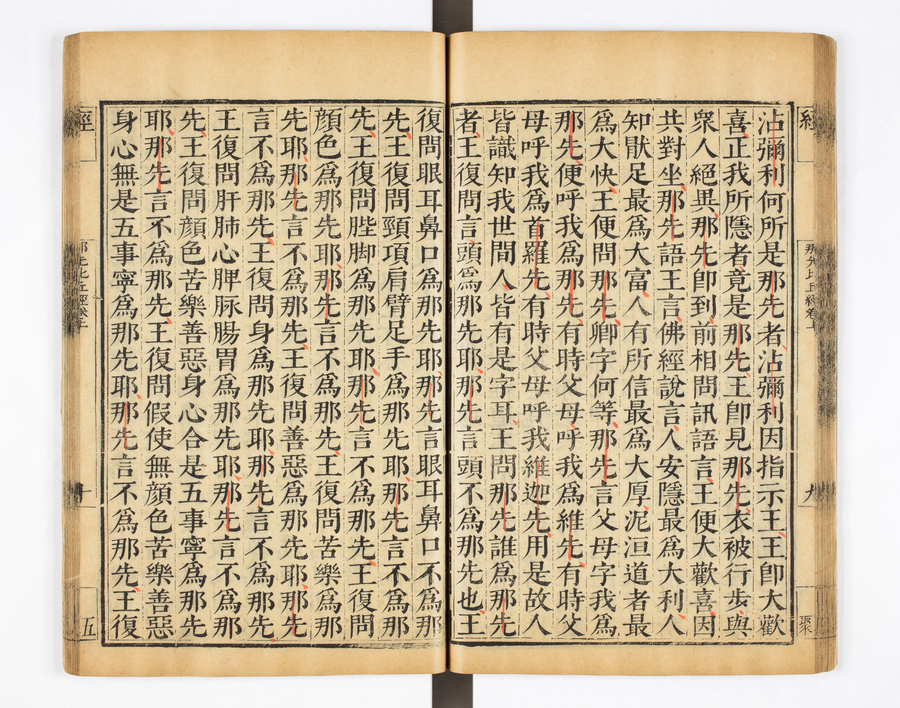 沾彌利何所是那先者沾彌利因指示王王卽大歡
喜正我所隱者竟是那先王卽見那先衣被行步與
衆人絕異那先卽到前相問訊語言王便大歡喜因
共對坐那先語王言佛經說言人安隱最爲大利人
知猒足最爲大富人有所信最爲大厚泥洹道者最
爲大快王便問那先卿字何等那先言父母字我爲
那先便呼我爲那先有時父母呼我爲維先有時父
母呼我爲首羅先有時父母呼我維迦先用是故人
皆識知我世間人皆有是字耳王問那先誰爲那先
者王復問言頭爲那先耶那先言頭不爲那先也王
復問眼耳鼻口爲那先耶那先言眼耳鼻口不爲那
先王復問頸項肩臂足手爲那先耶那先言不爲那
先王復問䏶脚爲那先耶那先言不爲那先王復問
顏色爲那先耶那先言不爲那先王復問苦樂爲那
先耶那先言不爲那先王復問善惡爲那先耶那先
言不爲那先王復問身爲那先耶那先言不爲那先
王復問肝肺心脾脉腸胃爲那先耶那先言不爲那
先王復問顏色苦樂善惡身心合是五事寧爲那先
耶那先言不爲那先王復問假使無顏色苦樂善惡
身心無是五事寧爲那先耶那先言不爲那先王復
經
那先比丘經卷上
十
五